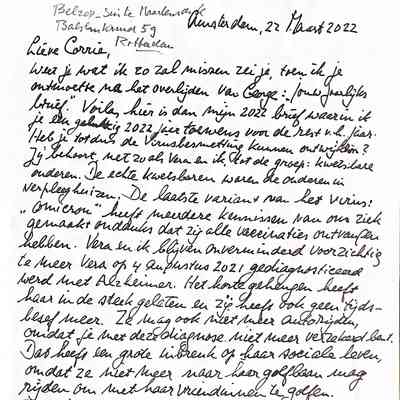 Amsterdam, 22 Maart 2022
Lieve Corrie,
Weet je wat ik zo zal missen zei je, toen ik je
ontmoette na het overlijden van George: "jouw jaarlijks
brief." Voilà, hier is dan mijn 2022 brief waarin ik
je een gelukkig 2022 jaar toewens voor de rest v.h. jaar.
Heb je tot dus de Virusbesmetting kunnen ontwijken?
Jij behoort, net zoals Vera en ik tot de groep: kwetsbare
ouderen. De echte kwetsbaren waren de ouderen in
verpleeghuizen. De laatste variant van het virus:
"omicron" heeft meerdere kennissen van ons ziek
gemaakt ondanks dat zij alle vaccinaties ontvangen
hebben. Vera en ik blijven onverminderd voorzichtig
te meer Vera op 4 augustus 2021 gediagnosticeerd
werd met Alzheimer. Het korte geheugen heeft
haar in de steek gelaten en zij heeft ook geen tijds-
besef meer. Ze mag ook niet meer autorijden,
omdat je met deze diagnose niet meer verzekerd bent.
Dat heeft een grote inbreuk op haar sociale leven,
omdat ze niet meer naar haar golfbaan mag
rijden om met haar vriendinnen te golfen.